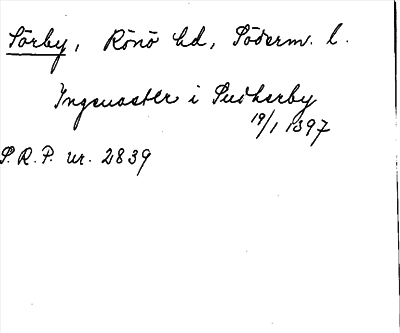 Sörby, Rönö hd, Söderm. l.
Ingeuastir i Sudherby
19/1 1397
S.R.P. nr. 2839